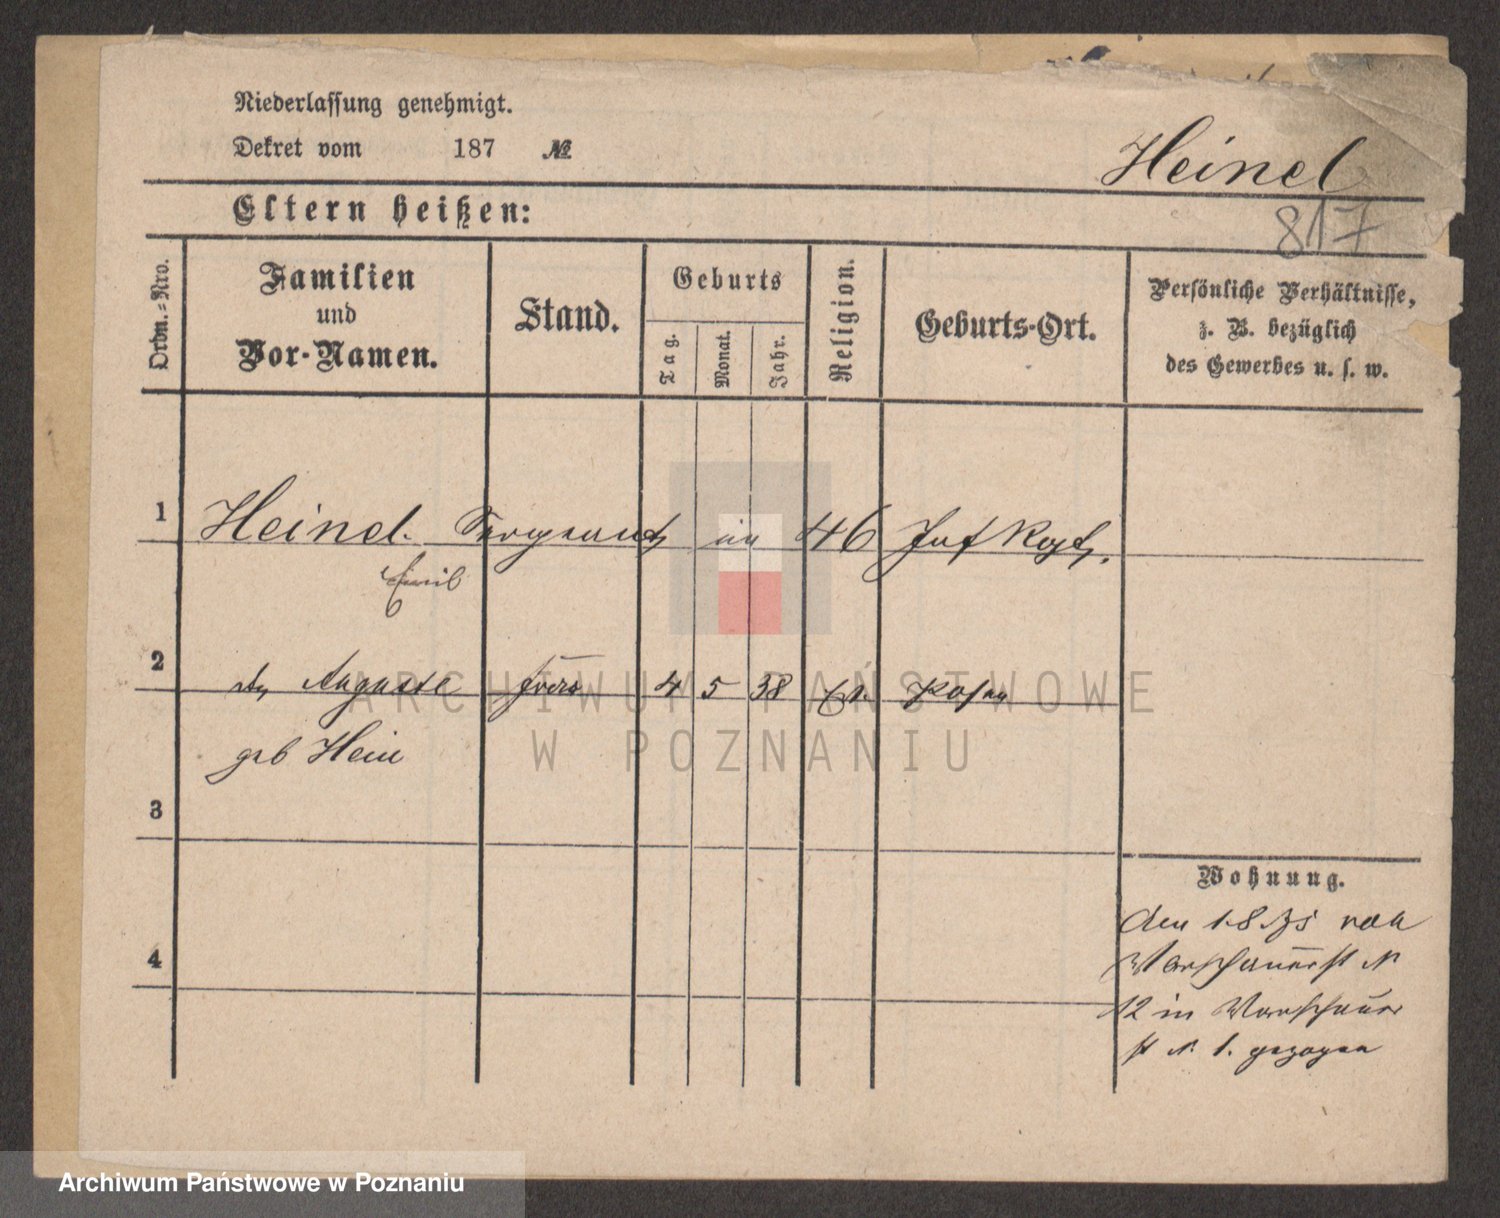 Niederlassung genehmigt.
Dekret vom 187 №
Heinel
Eltern heißen:
817
Ordn.-Nro.
Familien
und
Vor-Namen.
Stand.
Geburts
Tag.
Monat.
Jahr.
Religion.
Geburts-Ort.
Persönliche Verhältnisse,
z. B. bezüglich
des Gewerbes u. s. w.
1 Heinel. Sergeant im 46 Inf Regt.
Emil
2 Auguste Frau 4 5 38 Posen
geb Hein
3
4
Wohnung.
den 1.8. von
Warschauerst N
12 in Warschauer
st N. 1. gezogen
ARCHIWUM PAŃSTWOWE
W POZNANIU
Archiwum Państwowe w Poznaniu